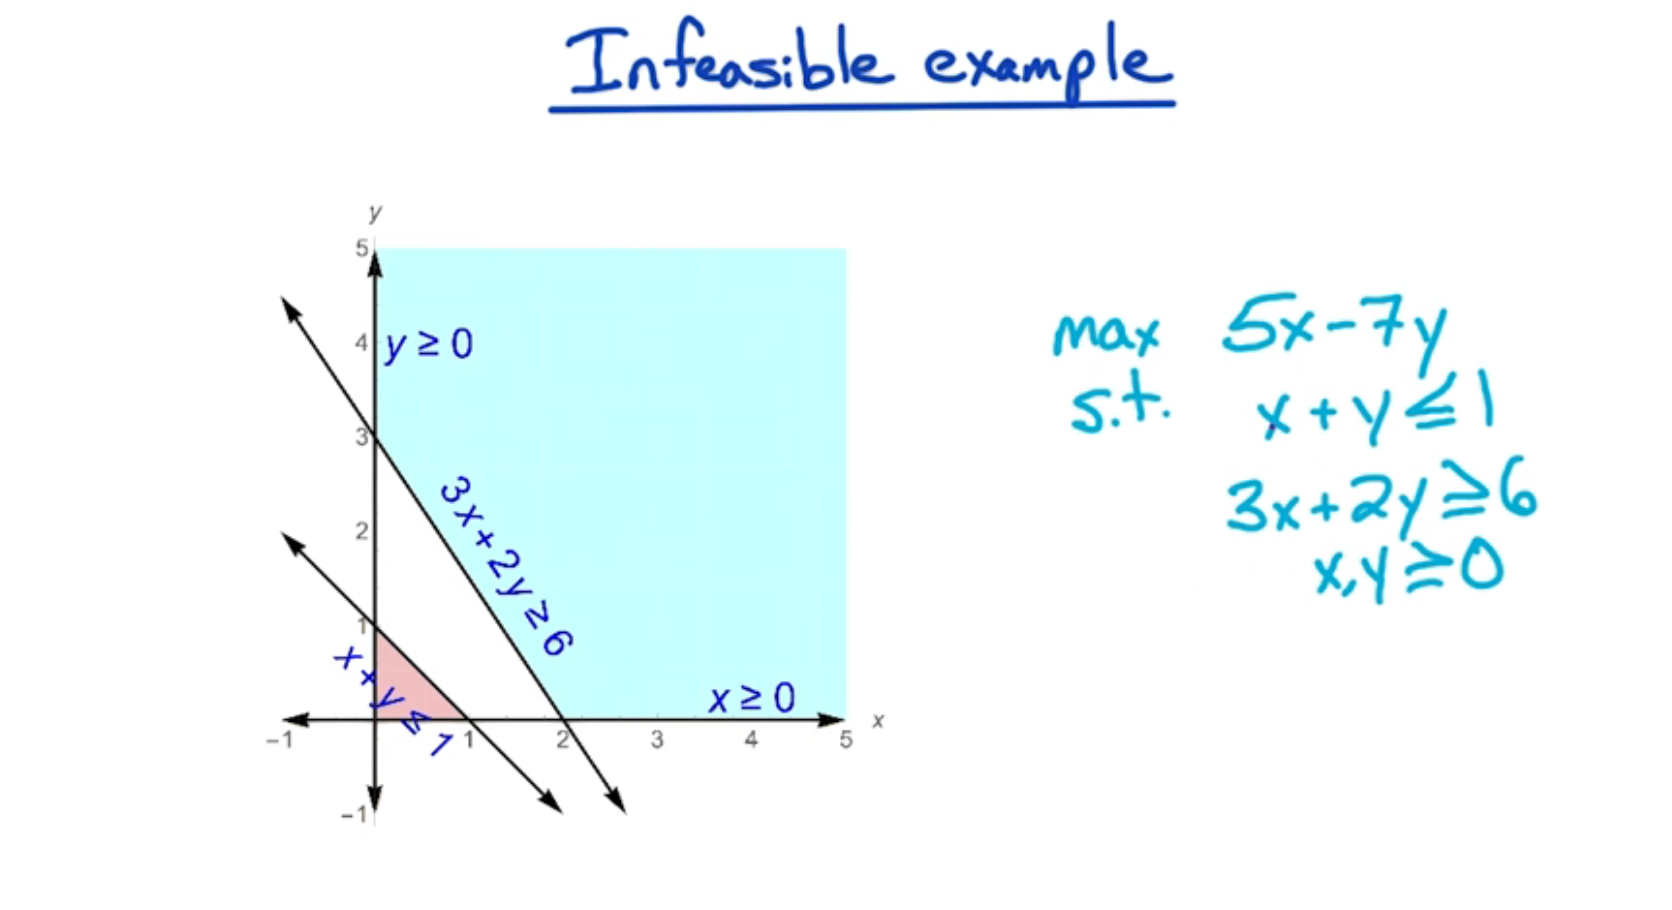 Infeasible example
y
5
y ≥ 0
4
3
3x+2y ≥ 6
2
1
x+y ≤ 1
x ≥ 0
x
-1
1
2
3
4
5
-1
max 5x-7y
s.t. x+y≤1
3x+2y≥6
x,y≥0